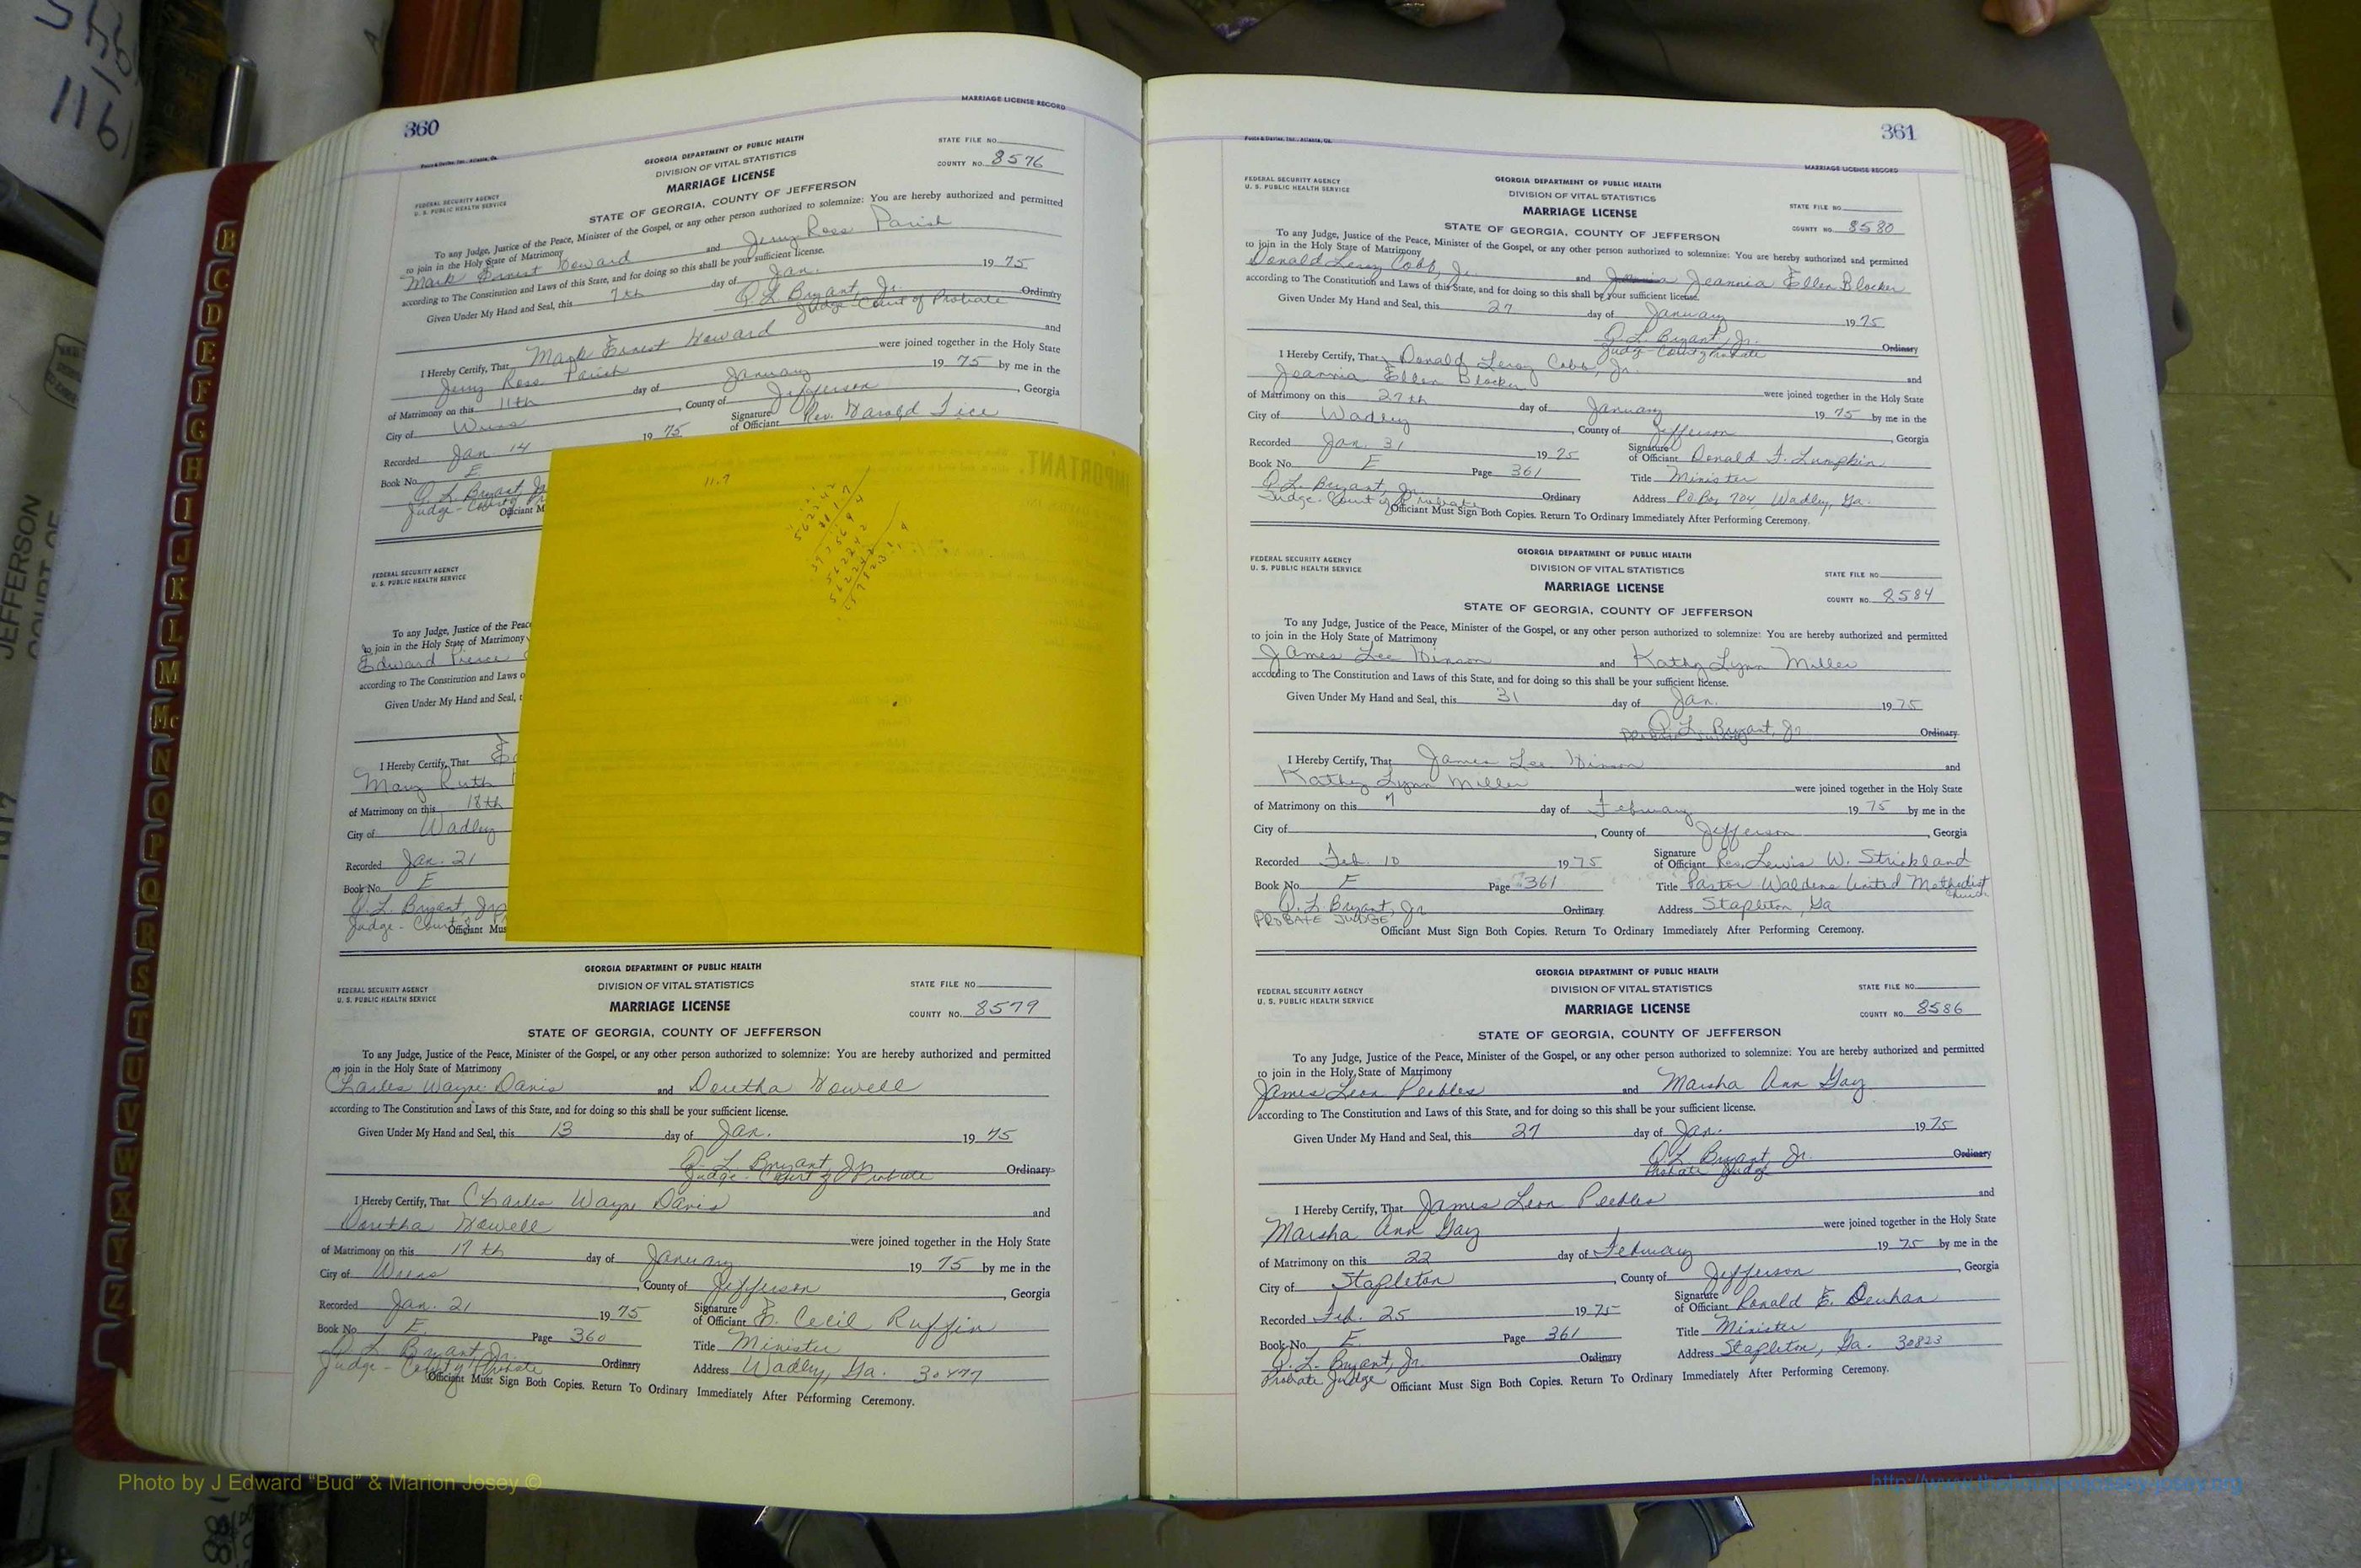 360
MARRIAGE LICENSE RECORD
Foote & Davies, Inc., Atlanta, Ga.
GEORGIA DEPARTMENT OF PUBLIC HEALTH
DIVISION OF VITAL STATISTICS
MARRIAGE LICENSE
STATE OF GEORGIA, COUNTY OF JEFFERSON
STATE FILE NO.
COUNTY NO. 8576
FEDERAL SECURITY AGENCY
U. S. PUBLIC HEALTH SERVICE
To any Judge, Justice of the Peace, Minister of the Gospel, or any other person authorized to solemnize: You are hereby authorized and permitted
to join in the Holy State of Matrimony
Mark Ernest Howard and Jerry Ross Parish
according to The Constitution and Laws of this State, and for doing so this shall be your sufficient license.
Given Under My Hand and Seal, this 7th day of Jan. 1975
Q. L. Bryant, Jr. Ordinary
Judge Court of Probate
I Hereby Certify, That Mark Ernest Howard and
Jerry Ross Parish were joined together in the Holy State
of Matrimony on this 11th day of January 1975 by me in the
City of Wrens, County of Jefferson, Georgia
Recorded Jan. 14 1975 Signature of Officiant Rev. Harold Tice
Book No. E
Q. L. Bryant Jr
Judge - County
Officiant M
FEDERAL SECURITY AGENCY
U. S. PUBLIC HEALTH SERVICE
To any Judge, Justice of the Peace
to join in the Holy State of Matrimony
Edward Pierce
according to The Constitution and Laws o
Given Under My Hand and Seal, t
I Hereby Certify, That
Mary Ruth
of Matrimony on this 18th
City of Wadley
Recorded Jan. 21
Book No. E
Q. L. Bryant, Jr
Judge - Court
Officiant Mus
IMPORTANT.
11.7
GEORGIA DEPARTMENT OF PUBLIC HEALTH
DIVISION OF VITAL STATISTICS
MARRIAGE LICENSE
STATE OF GEORGIA, COUNTY OF JEFFERSON
STATE FILE NO.
COUNTY NO. 8579
FEDERAL SECURITY AGENCY
U. S. PUBLIC HEALTH SERVICE
To any Judge, Justice of the Peace, Minister of the Gospel, or any other person authorized to solemnize: You are hereby authorized and permitted
to join in the Holy State of Matrimony
Charles Wayne Davis and Doretha Howell
according to The Constitution and Laws of this State, and for doing so this shall be your sufficient license.
Given Under My Hand and Seal, this 13 day of Jan. 1975
Q. L. Bryant Jr. Ordinary
Judge - Court of Probate
I Hereby Certify, That Charles Wayne Davis and
Doretha Howell were joined together in the Holy State
of Matrimony on this 17th day of January 1975 by me in the
City of Wrens, County of Jefferson, Georgia
Recorded Jan. 21 1975 Signature of Officiant E. Cecil Ruffin
Book No. E. Page 360 Title Minister
Q. L. Bryant, Jr. Ordinary Address Wadley, Ga. 30477
Judge - County Probate
Officiant Must Sign Both Copies. Return To Ordinary Immediately After Performing Ceremony.
361
MARRIAGE LICENSE RECORD
Foote & Davies, Inc., Atlanta, Ga.
FEDERAL SECURITY AGENCY
U. S. PUBLIC HEALTH SERVICE
GEORGIA DEPARTMENT OF PUBLIC HEALTH
DIVISION OF VITAL STATISTICS
MARRIAGE LICENSE
STATE OF GEORGIA, COUNTY OF JEFFERSON
STATE FILE NO.
COUNTY NO. 8580
To any Judge, Justice of the Peace, Minister of the Gospel, or any other person authorized to solemnize: You are hereby authorized and permitted
to join in the Holy State of Matrimony
Donald Leroy Cobb, Jr. and Jeannia Ellen Blocker
according to The Constitution and Laws of this State, and for doing so this shall be your sufficient license.
Given Under My Hand and Seal, this 27 day of January 1975
Q. L. Bryant, Jr. Ordinary
Judge - County Probate
I Hereby Certify, That Donald Leroy Cobb, Jr. and
Jeannia Ellen Blocker were joined together in the Holy State
of Matrimony on this 27th day of January 1975 by me in the
City of Wadley, County of Jefferson, Georgia
Recorded Jan. 31 1975 Signature of Officiant Donald F. Lumpkin
Book No. E Page 361 Title Minister
Q. L. Bryant, Jr. Ordinary Address P.O. Box 704, Wadley, Ga.
Judge - Court of Probate
Officiant Must Sign Both Copies. Return To Ordinary Immediately After Performing Ceremony.
FEDERAL SECURITY AGENCY
U. S. PUBLIC HEALTH SERVICE
GEORGIA DEPARTMENT OF PUBLIC HEALTH
DIVISION OF VITAL STATISTICS
MARRIAGE LICENSE
STATE OF GEORGIA, COUNTY OF JEFFERSON
STATE FILE NO.
COUNTY NO. 8584
To any Judge, Justice of the Peace, Minister of the Gospel, or any other person authorized to solemnize: You are hereby authorized and permitted
to join in the Holy State of Matrimony
James Lee Hinson and Kathy Lynn Miller
according to The Constitution and Laws of this State, and for doing so this shall be your sufficient license.
Given Under My Hand and Seal, this 31 day of Jan. 1975
Q. L. Bryant, Jr. Ordinary
I Hereby Certify, That James Lee Hinson and
Kathy Lynn Miller were joined together in the Holy State
of Matrimony on this 7 day of February 1975 by me in the
City of , County of Jefferson, Georgia
Recorded Feb. 10 1975 Signature of Officiant Rev. Lewis W. Strickland
Book No. E Page 361 Title Pastor Waldens United Methodist Church
Q. L. Bryant, Jr Ordinary Address Stapleton, Ga
PROBATE JUDGE
Officiant Must Sign Both Copies. Return To Ordinary Immediately After Performing Ceremony.
FEDERAL SECURITY AGENCY
U. S. PUBLIC HEALTH SERVICE
GEORGIA DEPARTMENT OF PUBLIC HEALTH
DIVISION OF VITAL STATISTICS
MARRIAGE LICENSE
STATE OF GEORGIA, COUNTY OF JEFFERSON
STATE FILE NO.
COUNTY NO. 8586
To any Judge, Justice of the Peace, Minister of the Gospel, or any other person authorized to solemnize: You are hereby authorized and permitted
to join in the Holy State of Matrimony
James Leon Peebles and Marsha Ann Gay
according to The Constitution and Laws of this State, and for doing so this shall be your sufficient license.
Given Under My Hand and Seal, this 27 day of Jan. 1975
Q. L. Bryant, Jr. Ordinary
Probate Judge
I Hereby Certify, That James Leon Peebles and
Marsha Ann Gay were joined together in the Holy State
of Matrimony on this 22 day of February 1975 by me in the
City of Stapleton, County of Jefferson, Georgia
Recorded Feb. 25 1975 Signature of Officiant Ronald E. Denhan
Book No. E Page 361 Title Minister
Q. L. Bryant, Jr. Ordinary Address Stapleton, Ga. 30823
Probate Judge
Officiant Must Sign Both Copies. Return To Ordinary Immediately After Performing Ceremony.
B
C
D
E
F
G
H
I
J
K
L
M
Mc
N
O
P
Q
R
S
T
U
V
W
X
Y
Z
JEFFERSON
COURT OF
Photo by J Edward “Bud” & Marion Josey ©